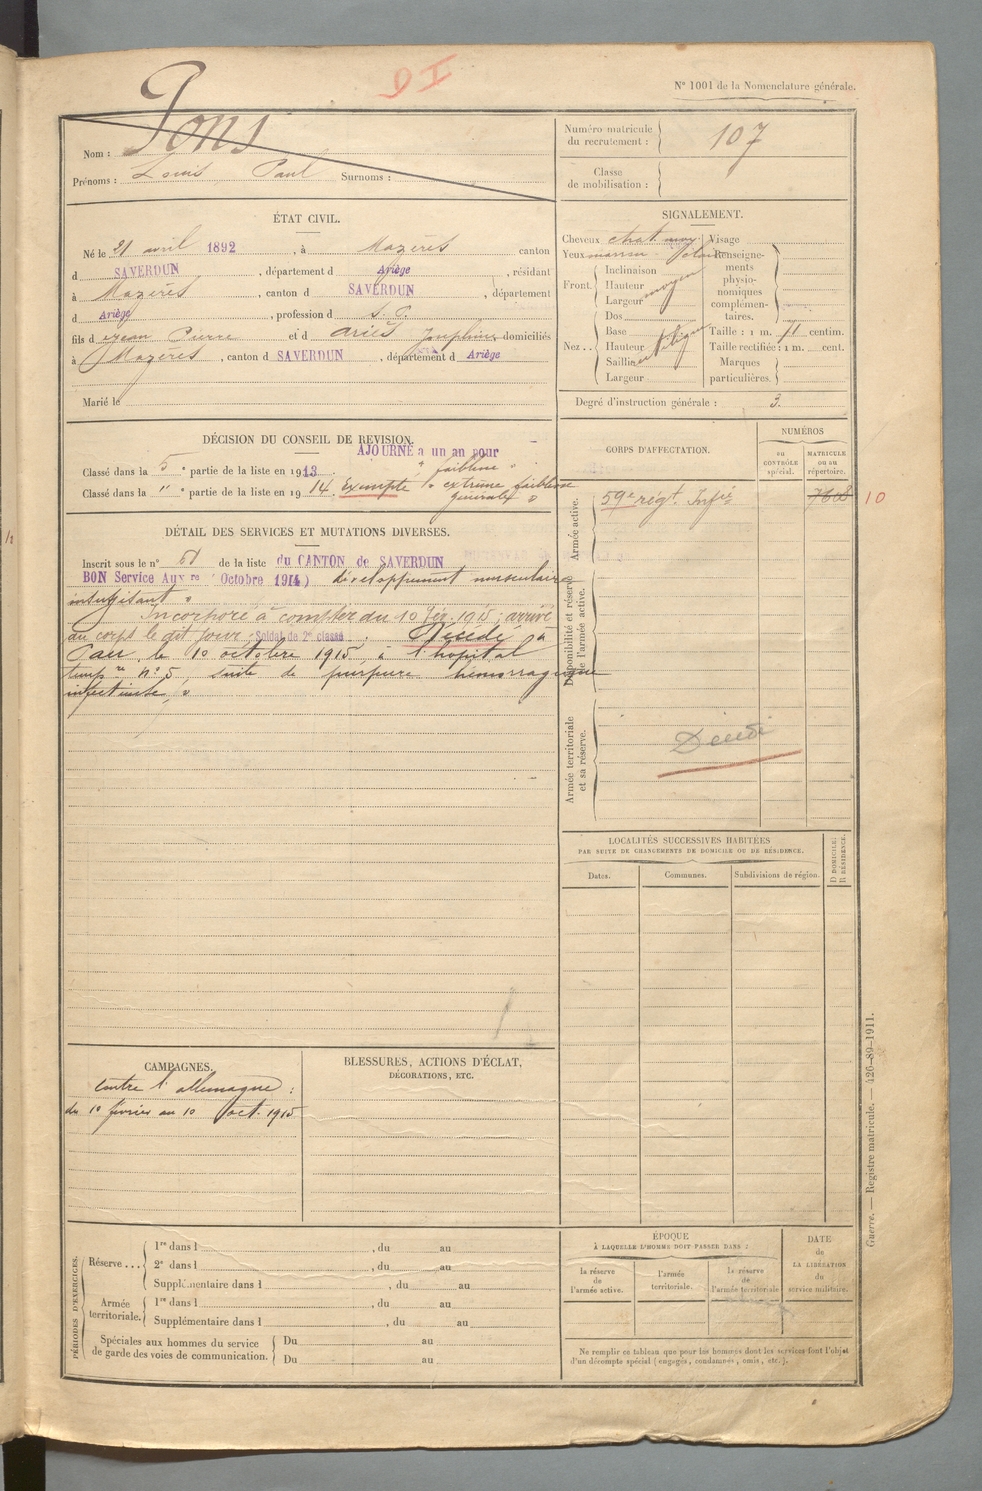 N° 1001 de la Nomenclature générale.
Nom : Pons
Prénoms : Louis Paul Surnoms :
Numéro matricule du recrutement : 107
Classe de mobilisation :
ÉTAT CIVIL.
Né le 21 avril 1892, à Mazères canton
d SAVERDUN, département d Ariège, résidant
à Mazères, canton d SAVERDUN, département
d Ariège, profession d S. P.
fils d e Jean Pierre et d Ariès Joséphine domiciliés
à Mazères, canton d SAVERDUN, département d Ariège
Marié le
SIGNALEMENT.
Cheveux chat. moy. Visage
Yeux marron
Front. Inclinaison
Hauteur moyen
Largeur
Nez .. Dos
Base
Hauteur
Saillie
Largeur
Renseignements physionomiques complémentaires.
Taille : 1 m. 71 centim.
Taille rectifiée : 1 m. cent.
Marques particulières.
Degré d'instruction générale : 3.
DÉCISION DU CONSEIL DE REVISION.
AJOURNÉ à un an pour
Classé dans la 5 e partie de la liste en 1913. faiblesse
Classé dans la " e partie de la liste en 1914. Exempté extrême faiblesse
générale
DÉTAIL DES SERVICES ET MUTATIONS DIVERSES.
Inscrit sous le n° de la liste du CANTON de SAVERDUN
BON Service Aux re (Octobre 1914) développement musculaire
insuffisant
Incorporé à compter du 10 fév. 1915 ; arrivé
au corps le dit jour. Soldat de 2e classe. Décédé à
Pau, le 10 octobre 1915 à l'hopital
temp re n° 5, suite de purpura hémorragique
CORPS D'AFFECTATION.
NUMÉROS
au CONTRÔLE spécial.
MATRICULE ou au répertoire.
Armée active.
59e rég.t Inf ie 7608 10
Disponibilité et réserve de l'armée active.
Armée territoriale et sa réserve.
Décédé
LOCALITÉS SUCCESSIVES HABITÉES
PAR SUITE DE CHANGEMENTS DE DOMICILE OU DE RÉSIDENCE.
Dates.
Communes.
Subdivisions de région.
D DOMICILE; R RÉSIDENCE.
CAMPAGNES.
Contre l'allemagne :
du 10 février au 10 oct. 1915
BLESSURES, ACTIONS D'ÉCLAT,
DÉCORATIONS, ETC.
PÉRIODES D'EXERCICES.
Réserve ... 1re dans l , du au
2e dans l , du au
Supplémentaire dans l , du au
Armée territoriale. 1re dans l , du au
Supplémentaire dans l , du au
Spéciales aux hommes du service de garde des voies de communication. Du au
Du au
ÉPOQUE
À LAQUELLE L'HOMME DOIT PASSER DANS :
la réserve de l'armée active.
l'armée territoriale.
la réserve de l'armée territoriale
DATE de LA LIBÉRATION du service militaire.
Ne remplir ce tableau que pour les hommes dont les services font l'objet
d'un décompte spécial (engagés, condamnés, omis, etc.).
Guerre. — Registre matricule. — 426-89-1911.